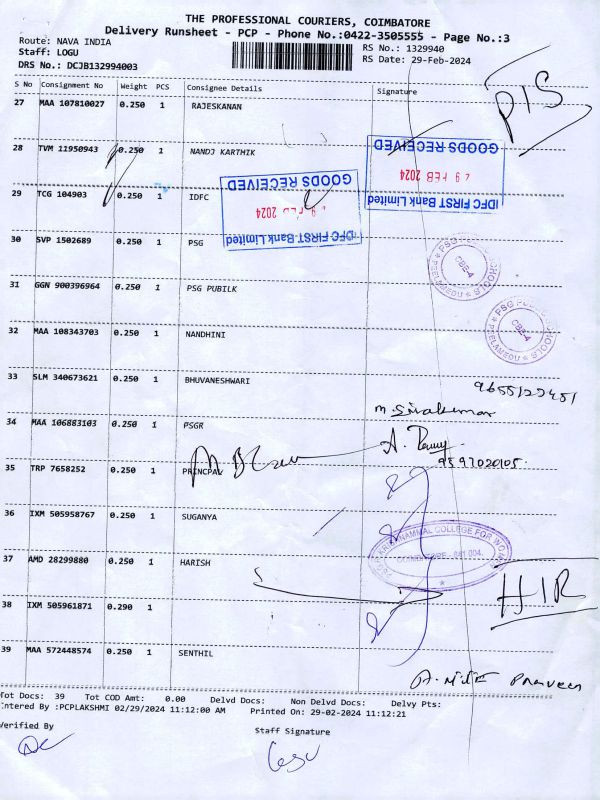 THE PROFESSIONAL COURIERS, COIMBATORE
Delivery Runsheet - PCP - Phone No.:0422-3505555 - Page No.:3
Route: NAVA INDIA
RS No.: 1329940
Staff: LOGU
RS Date: 29-Feb-2024
DRS No.: DCJB132994003
S No Consignment No Weight PCS Consignee Details Signature
27 MAA 107810027 0.250 1 RAJESKANAN
PIS
28 TVM 11950943 0.250 1 NANDJ KARTHIK
GOODS RECEIVED
29 FEB 2024
IDFC FIRST Bank Limited
29 TCG 104903 0.250 1 IDFC
GOODS RECEIVED
29 FEB 2024
IDFC FIRST Bank Limited
30 SVP 1502689 0.250 1 PSG
PSG PUBLIC SCHOOLS
CBE-4
PEELAMEDU
31 GGN 900396964 0.250 1 PSG PUBILK
PSG PUBLIC SCHOOLS
CBE-4
PEELAMEDU
32 MAA 108343703 0.250 1 NANDHINI
33 SLM 340673621 0.250 1 BHUVANESHWARI
m. Sivakumar
34 MAA 106883103 0.250 1 PSGR
9597020105
35 TRP 7658252 0.250 1 PRINCPAL
36 IXM 505958767 0.250 1 SUGANYA
KRISHNAMMAL COLLEGE FOR WOMEN
COIMBATORE - 641 004.
37 AMD 28299880 0.250 1 HARISH
HIR
38 IXM 505961871 0.290 1
39 MAA 572448574 0.250 1 SENTHIL
Praveen
Tot Docs: 39 Tot COD Amt: 0.00 Delvd Docs: Non Delvd Docs: Delvy Pts:
Entered By :PCPLAKSHMI 02/29/2024 11:12:00 AM Printed On: 29-02-2024 11:12:21
Verified By
Staff Signature
Logu